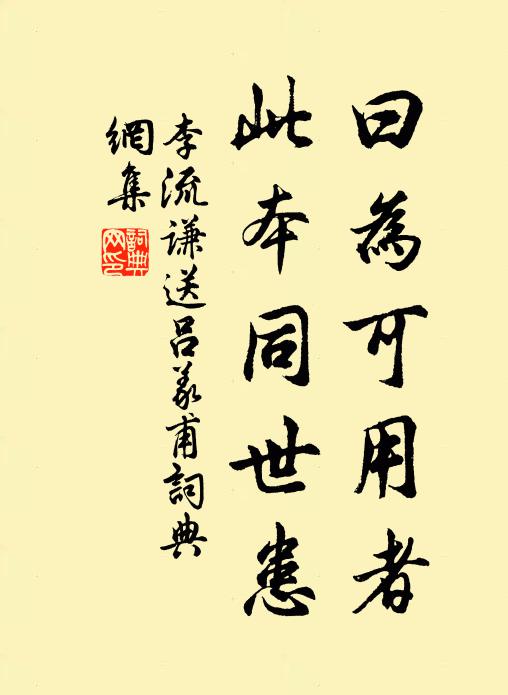 曰為可用者
此本同世患
李流謙送呂義甫詞典
網集
詞典網印